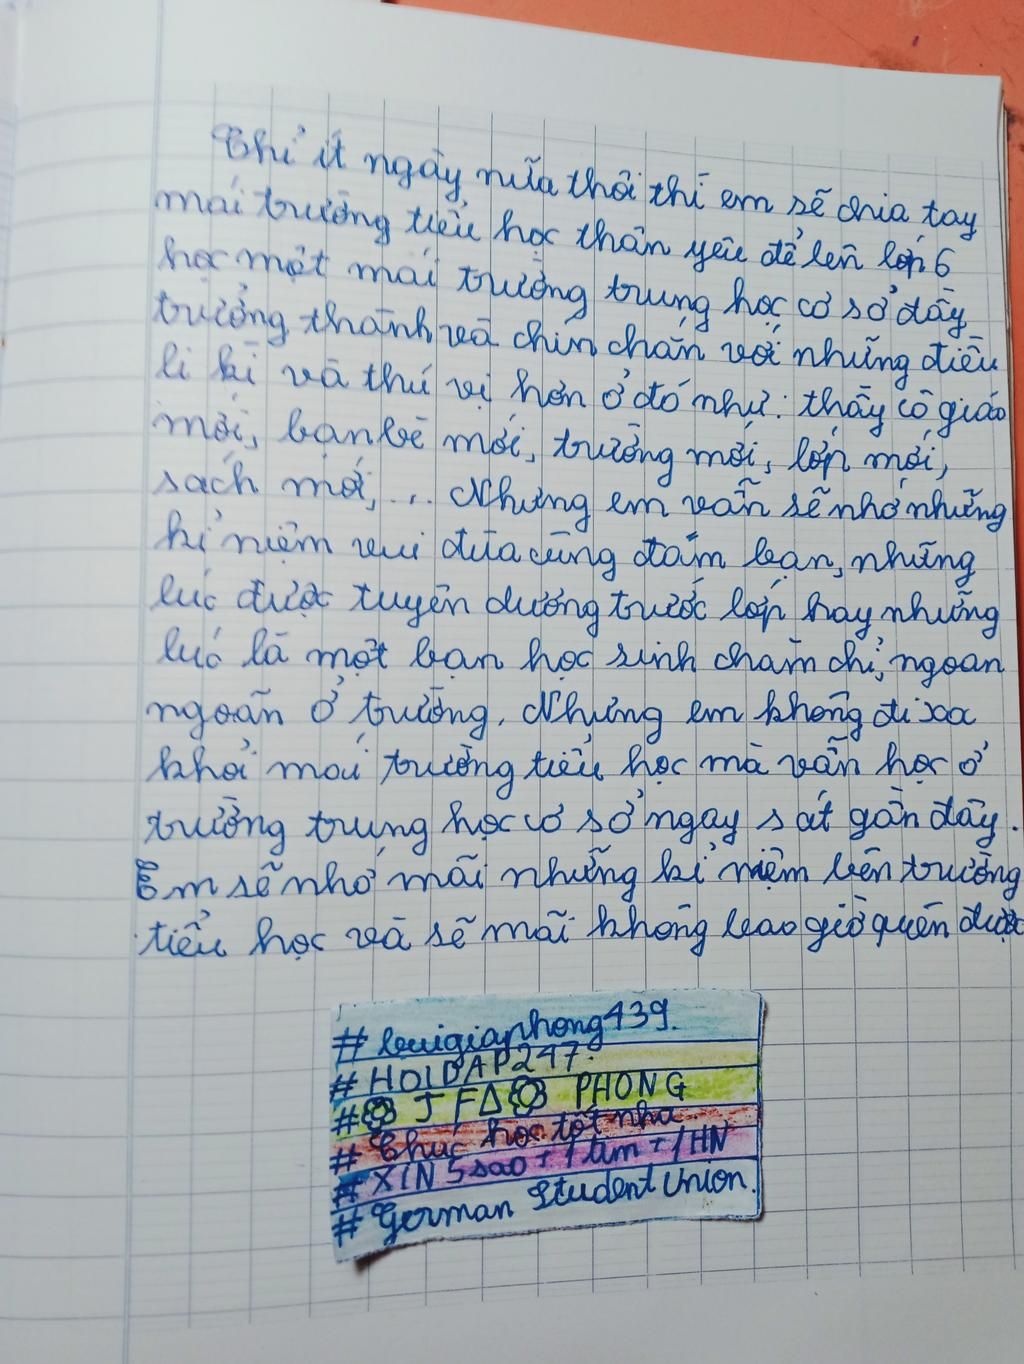 Chỉ ít ngày nữa thôi thì em sẽ chia tay
mái trường tiểu học thân yêu để lên lớp 6
học một mái trường trung học cơ sở đầy
trưởng thành và chín chắn với những điều
li kì và thú vị hơn ở đó như: thầy cô giáo
mới, bạn bè mới, trường mới, lớp mới,
sách mới,... Nhưng em vẫn sẽ nhớ những
kỉ niệm vui đùa cùng đám bạn, những
lúc được tuyên dương trước lớp hay những
lúc là một bạn học sinh chăm chỉ, ngoan
ngoãn ở trường. Nhưng em không đi xa
khỏi mái trường tiểu học mà vẫn học ở
trường trung học cơ sở ngay sát gần đây.
Em sẽ nhớ mãi những kỉ niệm bên trường
tiểu học và sẽ mãi không bao giờ quên được
#buigiaphong439.
#HOIDAP247.
# JFA PHONG
#Chúc học tốt nha
#XIN 5 sao + 1 tim + 1HN
#German Student Union.